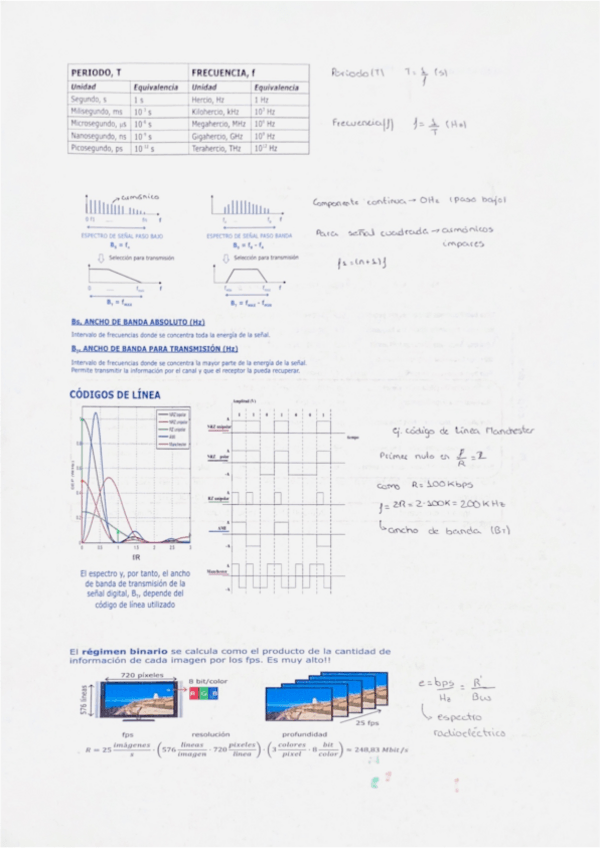 PERIODO, T FRECUENCIA, f
Unidad Equivalencia Unidad Equivalencia
Segundo, s 1 s Hercio, Hz 1 Hz
Milisegundo, ms 10⁻³ s Kilohercio, kHz 10³ Hz
Microsegundo, μs 10⁻⁶ s Megahercio, MHz 10⁶ Hz
Nanosegundo, ns 10⁻⁹ s Gigahercio, GHz 10⁹ Hz
Picosegundo, ps 10⁻¹² s Terahercio, THz 10¹² Hz
Periodo (T) T = 1/f (s)
Frecuencia (f) f = 1/T (Hz)
armónico
ESPECTRO DE SEÑAL PASO BAJO
ESPECTRO DE SEÑAL PASO BANDA
Selección para transmisión
Selección para transmisión
Componente continua → 0Hz (paso bajo)
Para señal cuadrada → armónicos
impares
Bs, ANCHO DE BANDA ABSOLUTO (Hz)
Intervalo de frecuencias donde se concentra toda la energía de la señal.
B_T, ANCHO DE BANDA PARA TRANSMISIÓN (Hz)
Intervalo de frecuencias donde se concentra la mayor parte de la energía de la señal.
Permite transmitir la información por el canal y que el receptor la pueda recuperar.
CÓDIGOS DE LÍNEA
El espectro y, por tanto, el ancho
de banda de transmisión de la
señal digital, B_T, depende del
código de línea utilizado
NRZ unipolar
NRZ polar
RZ unipolar
AMI
Manchester
1 1 0 1 0 0 1
tiempo
ej. código de línea Manchester
Primer nulo en f/R = 2
como R = 100 Kbps
f = 2R = 2·100K = 200 KHz
ancho de banda (BT)
El régimen binario se calcula como el producto de la cantidad de
información de cada imagen por los fps. Es muy alto!!
720 píxeles
576 líneas
8 bit/color
R G B
25 fps
fps resolución profundidad
R = 25 imágenes/s · (576 líneas/imagen · 720 píxeles/línea) · (3 colores/píxel · 8 bit/color) = 248,83 Mbit/s
e = bps/Hz = R/BW
espectro
radioeléctrico